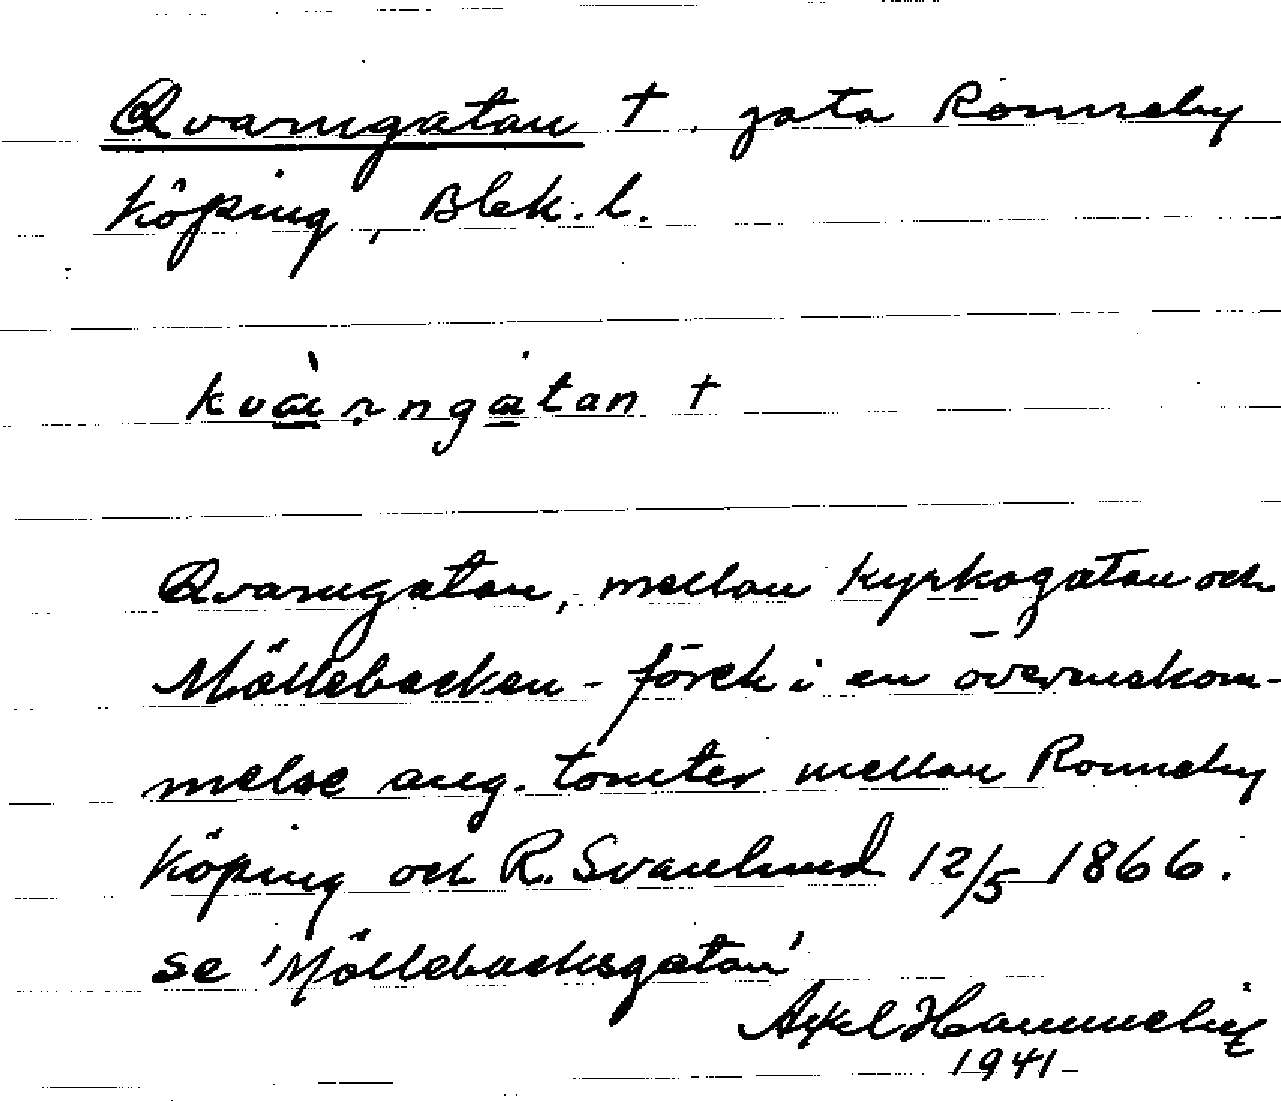 Qvarngatan †. gata Ronneby
köping, Blek. l.
kvæ̀rngatan †
Qvarngatan, mellan Kyrkogatan och
Möllebacken - förek i en överenskom-
melse ang. tomter mellan Ronneby
köping och R. Svanlund 12/5 1866.
se 'Möllebacksgatan'
Axel
1941-